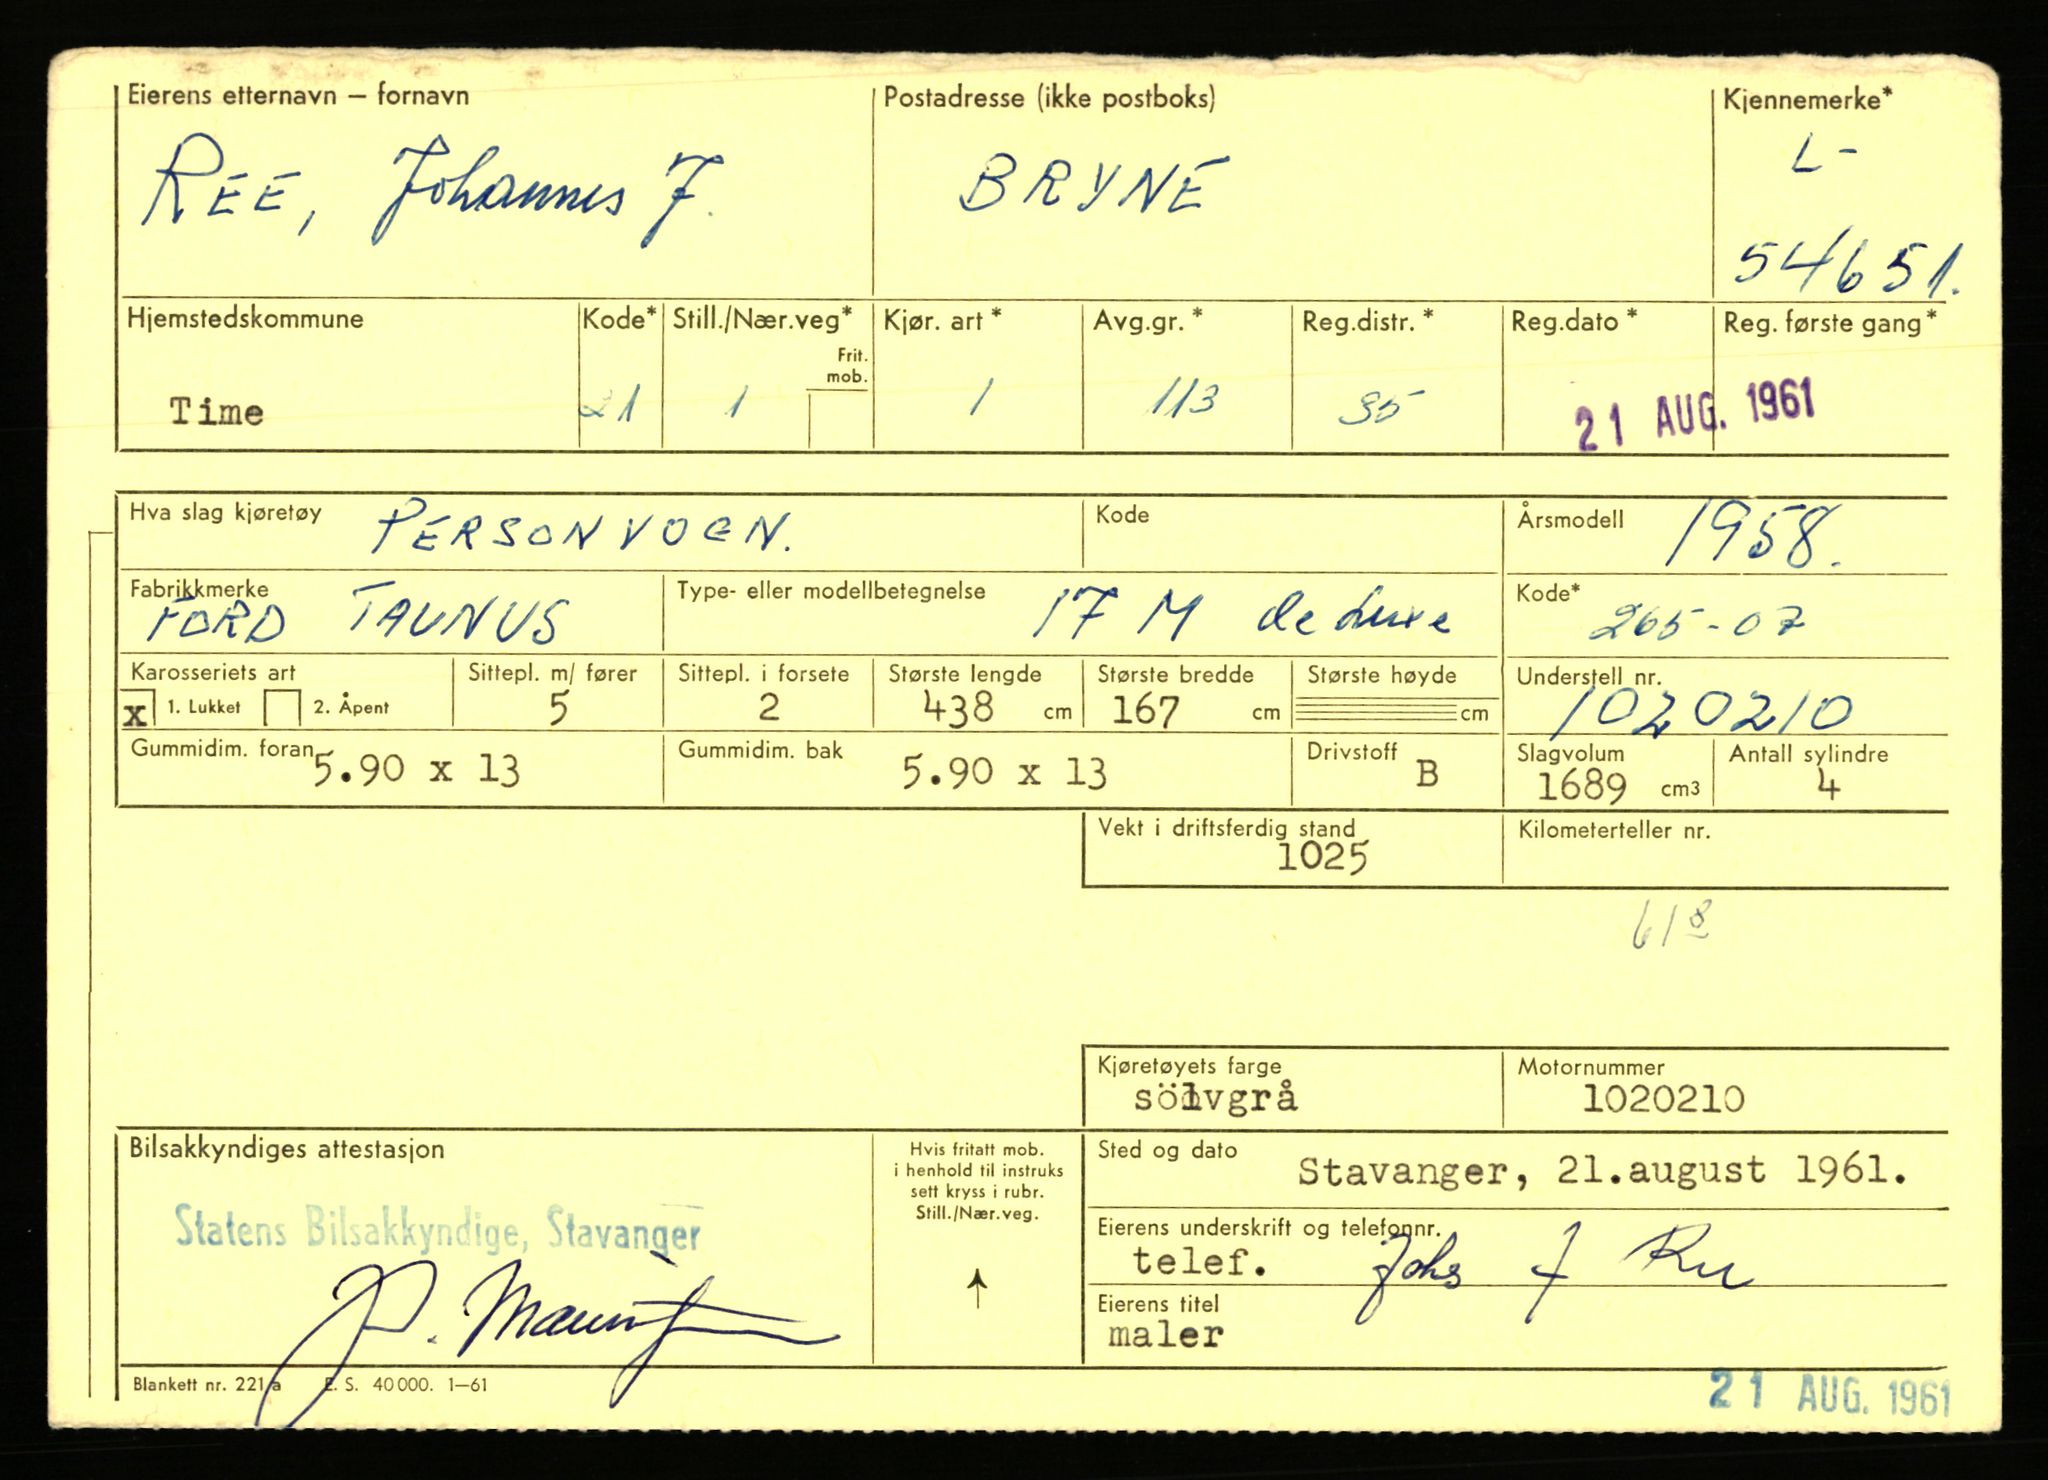 Eierens etternavn – fornavn Postadresse (ikke postboks) Kjennemerke*
REE, Johannes J. BRYNE L-
54651.
Hjemstedskommune Kode* Still./Nær.veg* Kjør. art* Avg.gr.* Reg.distr.* Reg.dato* Reg. første gang*
Frit. mob.
Time 21 1 1 113 35 21 AUG. 1961
Hva slag kjøretøy PERSONVOGN. Kode Årsmodell 1958.
Fabrikkmerke Type- eller modellbetegnelse Kode*
FORD TAUNUS 17 M de Luxe 265-07
Karosseriets art Sittepl. m/ fører Sittepl. i forsete Største lengde Største bredde Største høyde Understell nr.
x 1. Lukket 2. Åpent 5 2 438 cm 167 cm cm 1020210
Gummidim. foran Gummidim. bak Drivstoff Slagvolum Antall sylindre
5.90 x 13 5.90 x 13 B 1689 cm3 4
Vekt i driftsferdig stand Kilometerteller nr.
1025
61 8
Kjøretøyets farge Motornummer
sölvgrå 1020210
Bilsakkyndiges attestasjon Hvis fritatt mob. i henhold til instruks sett kryss i rubr. Still./Nær.veg. Sted og dato
Stavanger, 21.august 1961.
Statens Bilsakkyndige, Stavanger
Eierens underskrift og telefonnr.
telef. Johs J Ree
Eierens titel
maler
Blankett nr. 221 a E. S. 40 000. 1–61
21 AUG. 1961